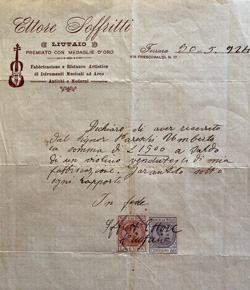 Ettore Soffritti
LIUTAIO
PREMIATO CON MEDAGLIE D'ORO
Fabbricazione e Ristauro Artistico
di Istrumenti Musicali ad Arco
Antichi e Moderni
Ferrara 20-5-924
VIA FRESCOBALDI, N. 17
Dichiaro di aver ricevuto
dal Signor Umberto
la somma di L 1500 a saldo
di un violino vendutogli di mia
fabbricazione. Garantito sotto
ogni rapporto
In fede
Soffritti Ettore
Liutaio